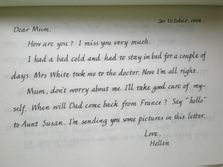 20 October, 1998
Dear Mum,
How are you? I miss you very much.
I had a bad cold and had to stay in bed for a couple of
days. Mrs White took me to the doctor. Now I'm all right.
Mum, don't worry about me. I'll take good care of my-
self. When will Dad come back from France? Say "hello"
to Aunt Susan. I'm sending you some pictures in this letter.
Love,
Hellen